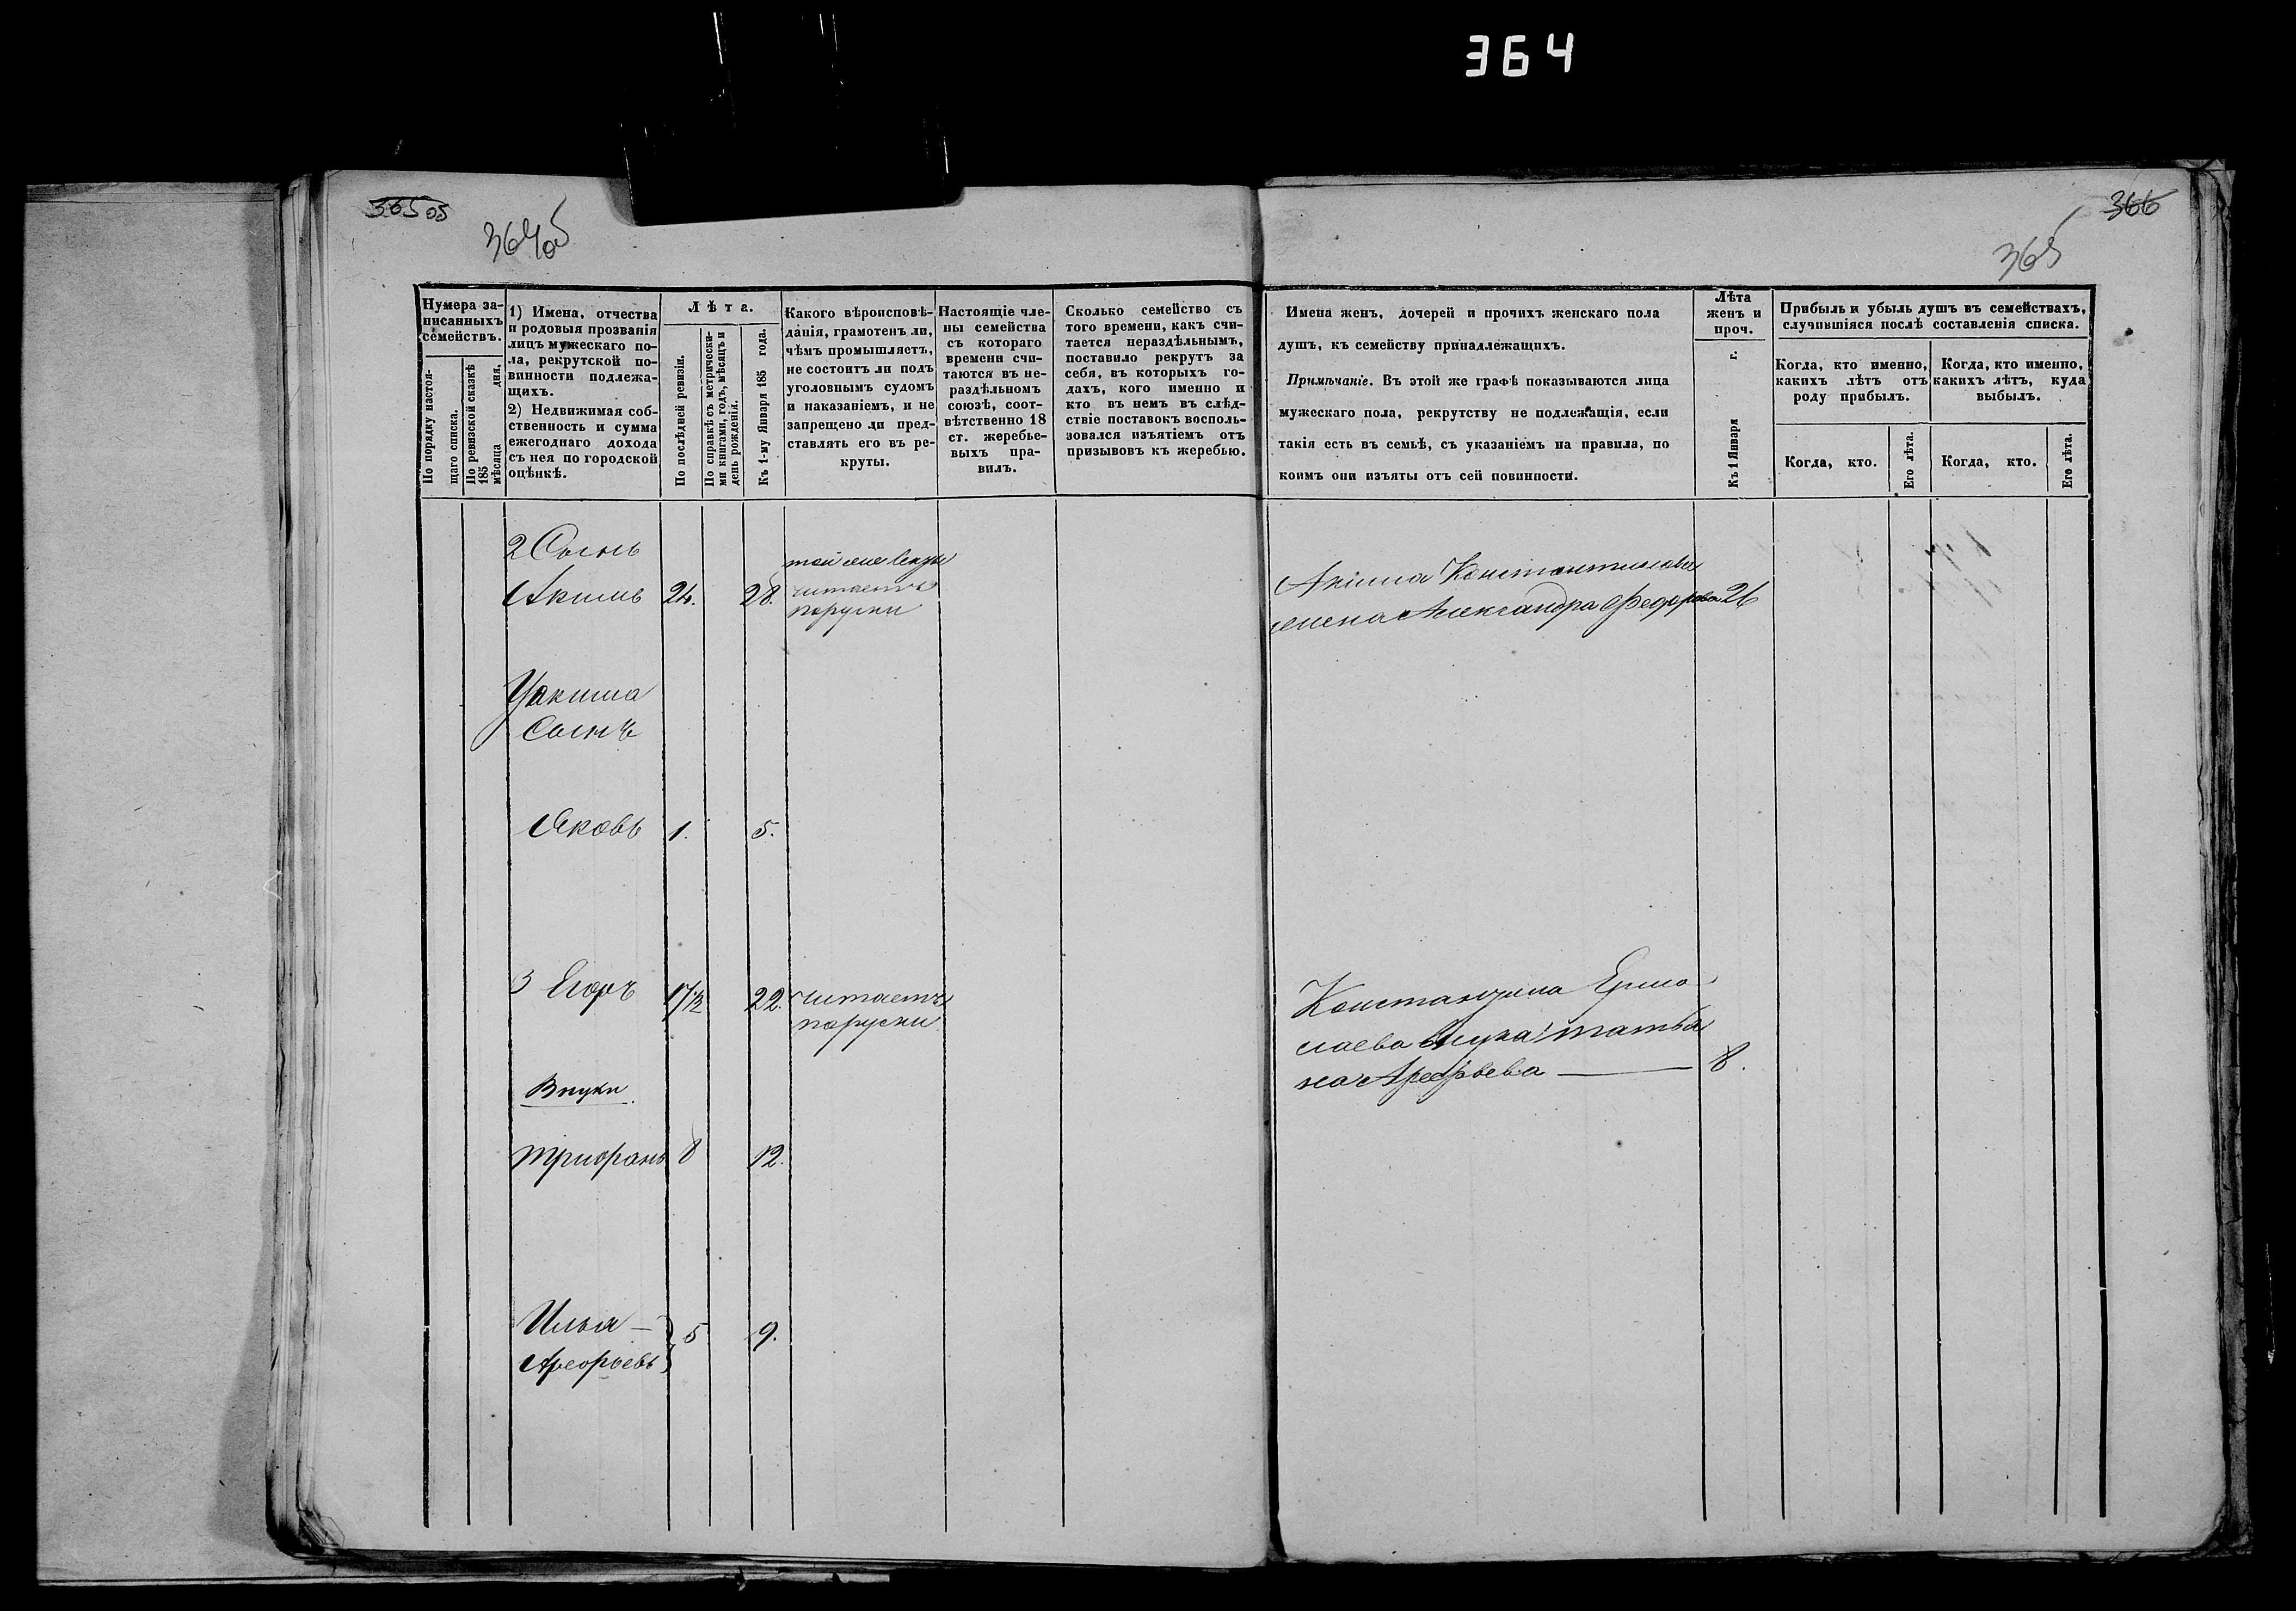 364
365 об
364об
366
365
Нумера за-
писанныхъ
семействъ.
По порядку настоя-
щаго списка.
По ревизской сказкѣ
185 дня,
мѣсяца
1) Имена, отчества
и родовыя прозванія
лицъ мужескаго по-
ла, рекрутской по-
винности подлежа-
щихъ.
2) Недвижимая соб-
ственность и сумма
ежегоднаго дохода
съ нея по городской
оцѣнкѣ.
Лѣта.
По послѣдней ревизіи.
По справкѣ съ метрически-
ми книгами, годъ, мѣсяцъ и
день рожденія.
Къ 1-му Января 185 года.
Какого вѣроисповѣ-
данія, грамотенъ ли,
чѣмъ промышляетъ,
не состоитъ ли подъ
уголовнымъ судомъ
и наказаніемъ, и не
запрещено ли пред-
ставлять его въ ре-
круты.
Настоящіе чле-
ны семейства
съ котораго
времени счи-
таются въ не-
раздѣльномъ
союзѣ, соот-
вѣтственно 18
ст. жеребье-
выхъ пра-
вилъ.
Сколько семейство съ
того времени, какъ счи-
тается нераздѣльнымъ,
поставило рекрутъ за
себя, въ которыхъ го-
дахъ, кого именно и
кто въ немъ въ слѣд-
ствіе поставокъ восполь-
зовался изъятіемъ отъ
призывовъ къ жеребью.
Имена женъ, дочерей и прочихъ женскаго пола
душъ, къ семейству принадлежащихъ.
Примѣчаніе. Въ этой же графѣ показываются лица
мужескаго пола, рекрутству не подлежащія, если
такія есть въ семьѣ, съ указаніемъ на правила, по
коимъ они изъяты отъ сей повинности.
Лѣта
женъ и
проч.
Къ 1 Января г.
Прибыль и убыль душъ въ семействахъ,
случившіяся послѣ составленія списка.
Когда, кто именно,
какихъ лѣтъ отъ
роду прибылъ.
Когда, кто именно,
какихъ лѣтъ, куда
выбылъ.
Когда, кто.
Его лѣта.
Когда, кто.
Его лѣта.
2 Сынъ
той же секты
Акимъ 24. 28. читаетъ
поруски
Акима Константинова
жена Александра Федорова 26
У Акима
Сынъ
Яковъ 1. 5.
3 Егоръ 17½ 22. читаетъ
поруски
Константина Ермо-
лаева внука Татья
на Арефьева 8.
Внуки.
Трифонъ 8 12.
Илья 5 9.
Арефьевъ